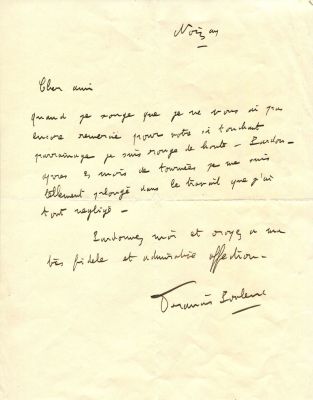 Noizay
Cher ami
quand je songe que je ne vous ai pas
encore remercié pour votre si touchant
parrainage je suis rouge de honte - Pardon -
après 2 mois de tournées je me suis
tellement plongé dans le travail que j'ai
tout négligé -
Pardonnez moi et croyez à ma
très fidèle et admirative affection -
Francis Poulenc